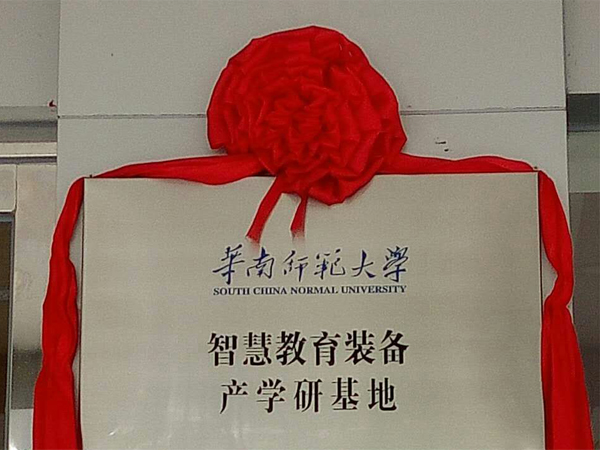 華南师範大学
SOUTH CHINA NORMAL UNIVERSITY
智慧教育装备
产学研基地